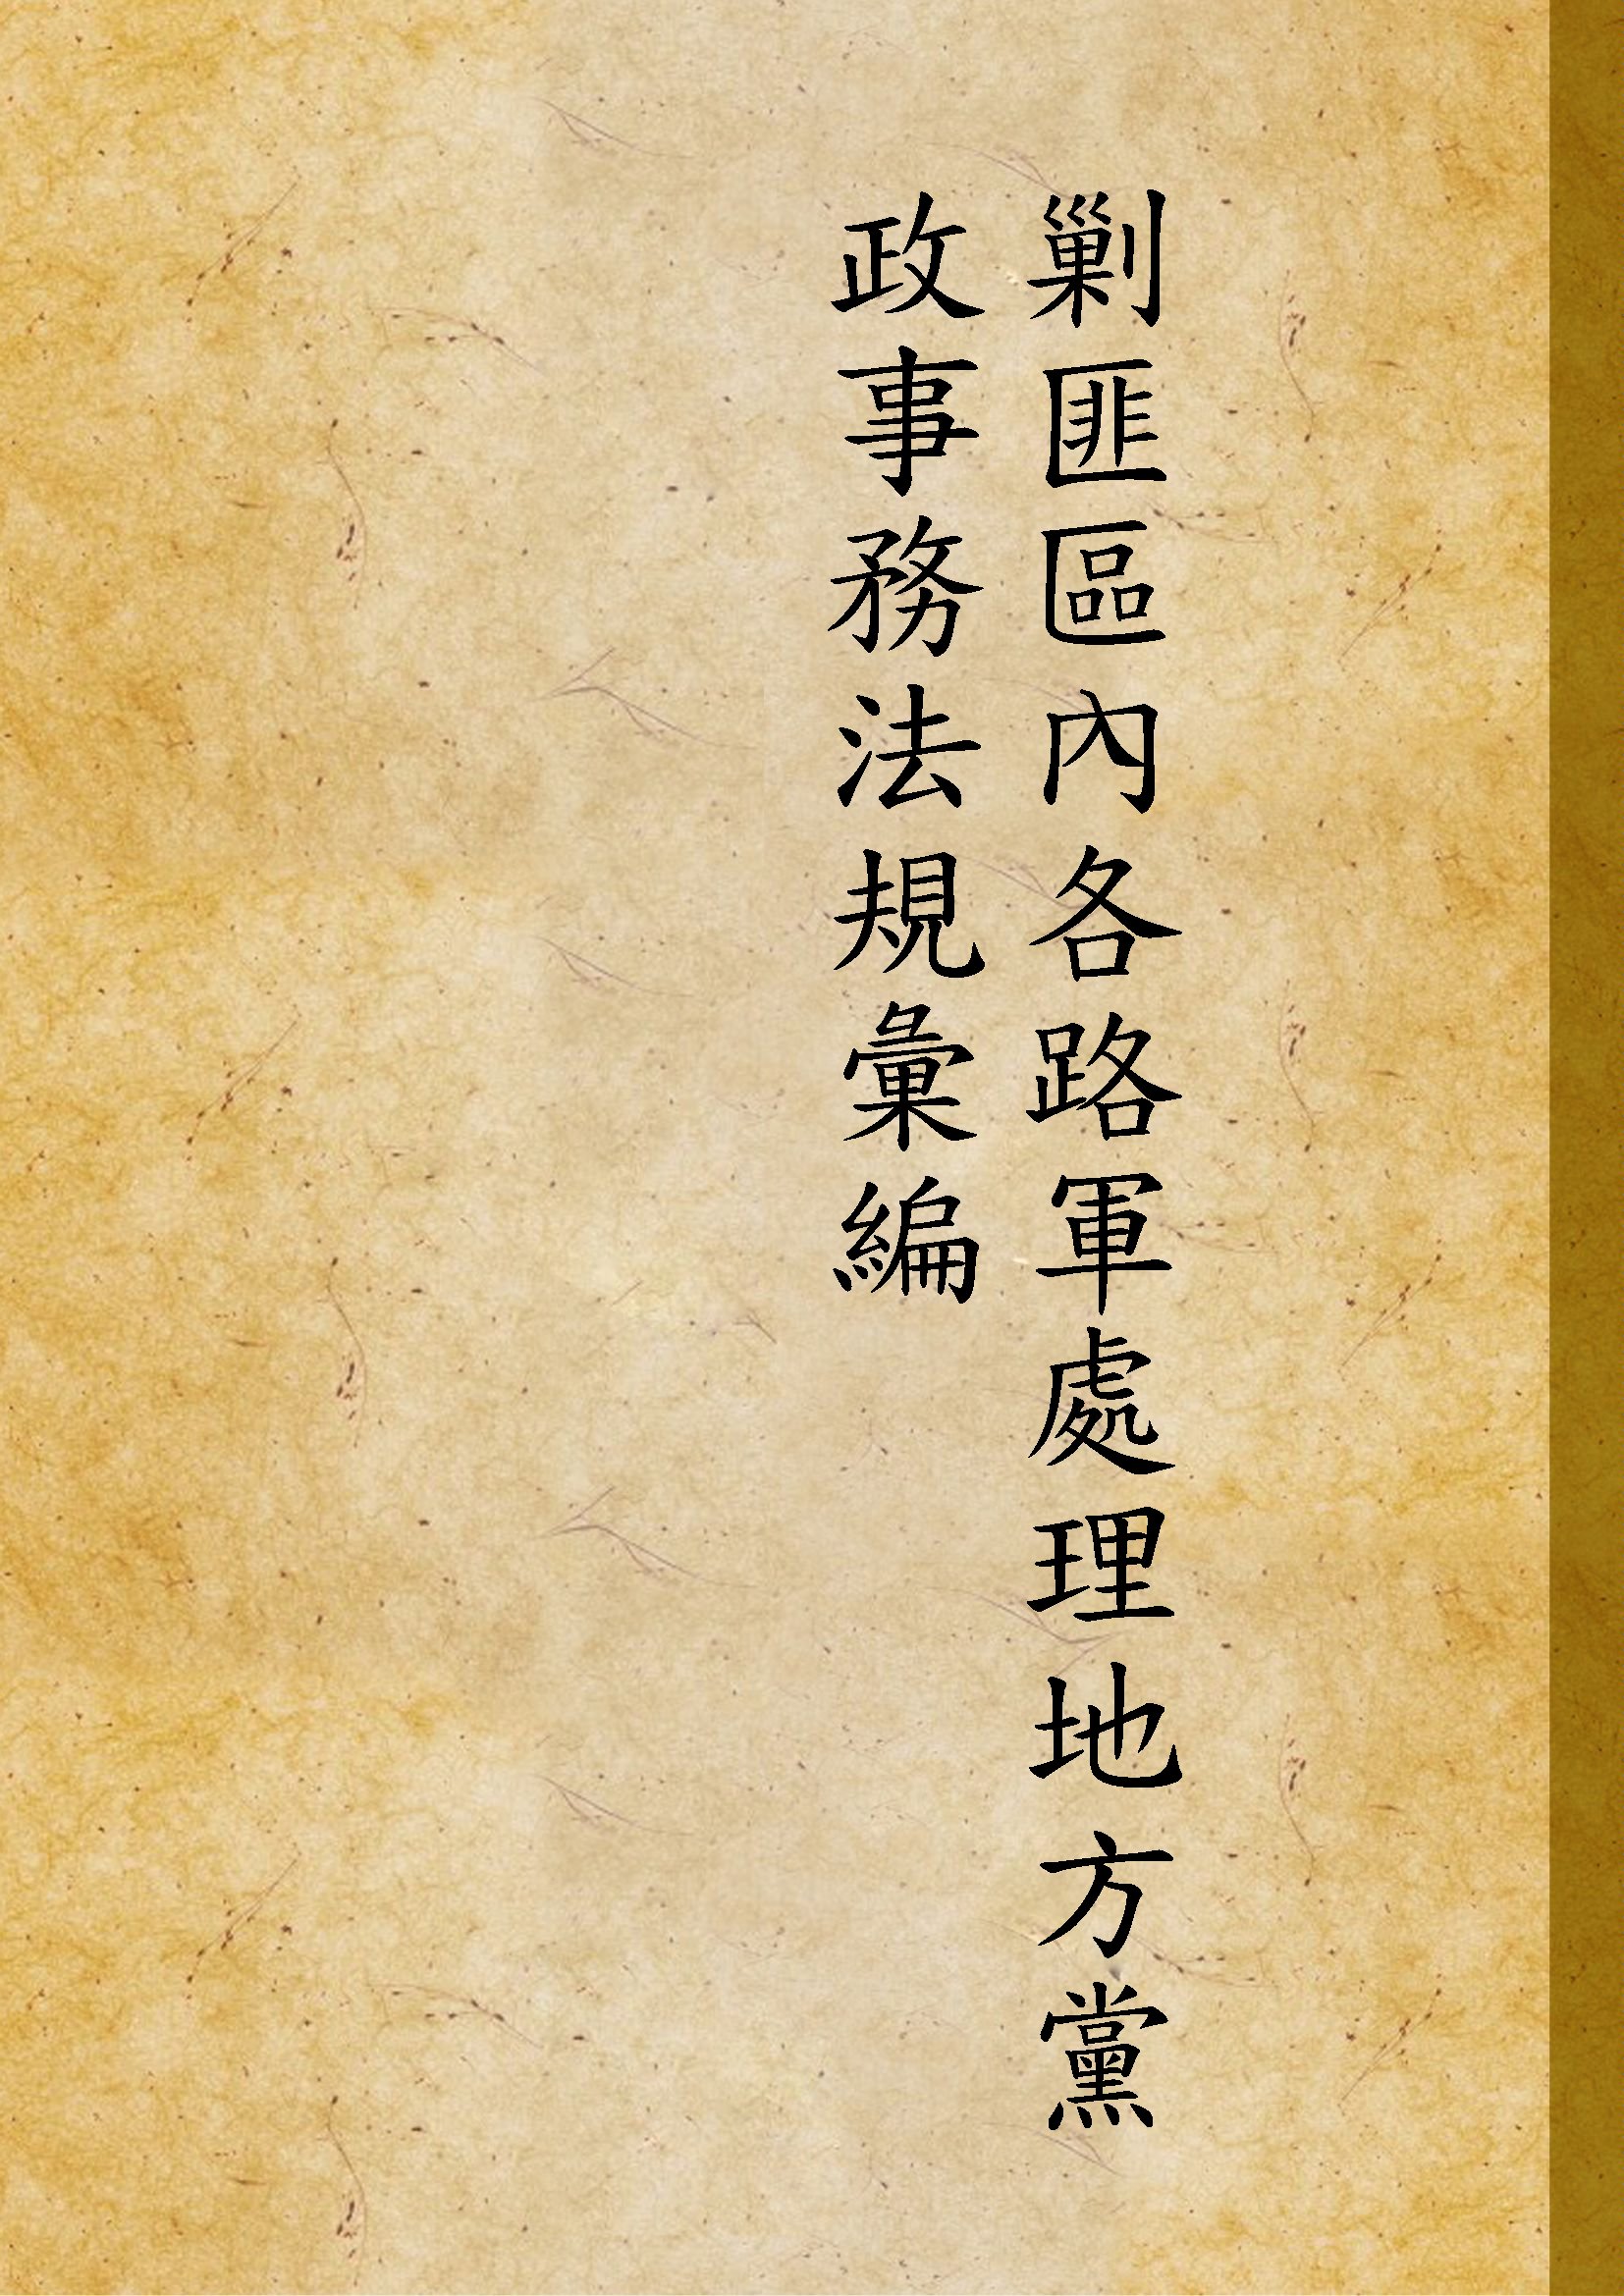 剿匪區內各路軍處理地方黨
政事務法規彙編